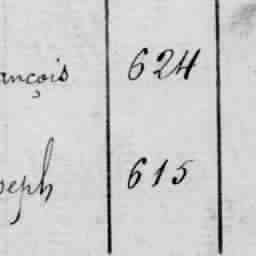 ançois 624
seph 615